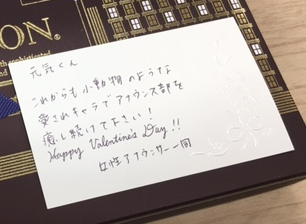 ON.
元気くん
これからも小動物のような
愛されキャラでアナウンス部を
癒し続けて下さい!
Happy Valentine's Day!!
女性アナウンサー一同